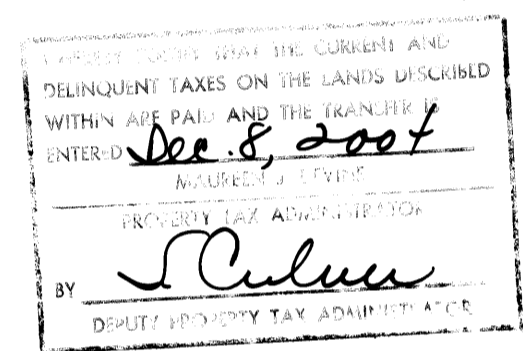 I HEREBY CERTIFY THAT THE CURRENT AND
DELINQUENT TAXES ON THE LANDS DESCRIBED
WITHIN ARE PAID AND THE TRANSFER IS
ENTERED Dec. 8, 2004
MAUREEN J. DEVINE
PROPERTY TAX ADMINISTRATOR
BY J Culver
DEPUTY PROPERTY TAX ADMINISTRATOR